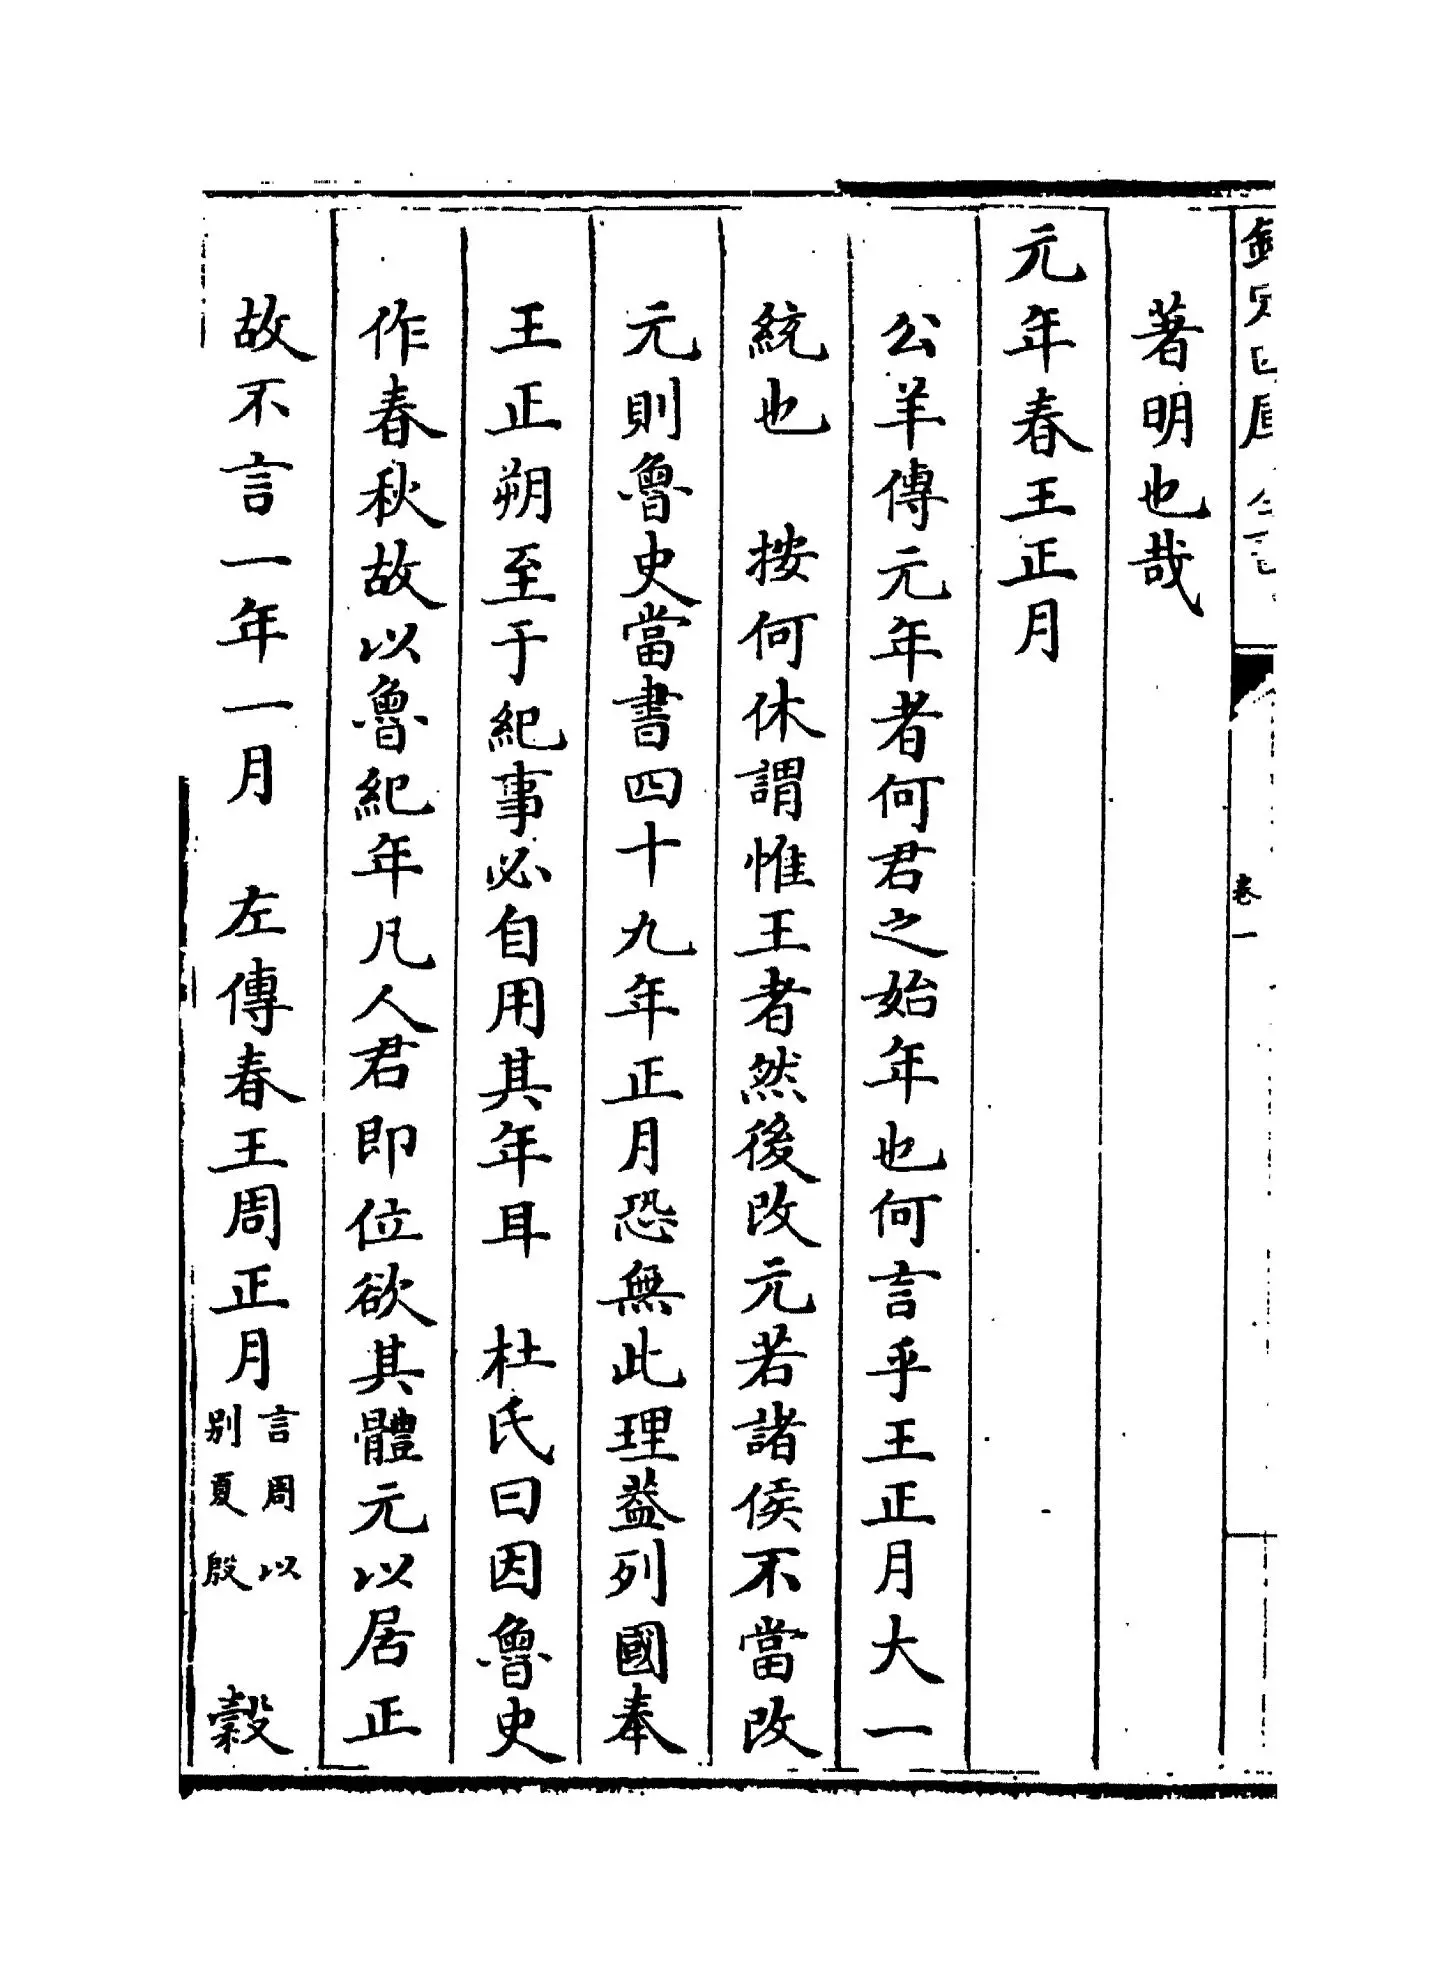 著明也哉
元年春王正月
公羊傳元年者何君之始年也何言乎王正月大一
統也　按何休謂惟王者然後改元若諸侯不當改
元則魯史當書四十九年正月恐無此理葢列國奉
王正朔至于紀事必自用其年耳　杜氏曰因魯史
作春秋故以魯紀年凡人君即位欲其體元以居正
故不言一年一月　左傳春王周正月言周以别夏殷　穀
卷一